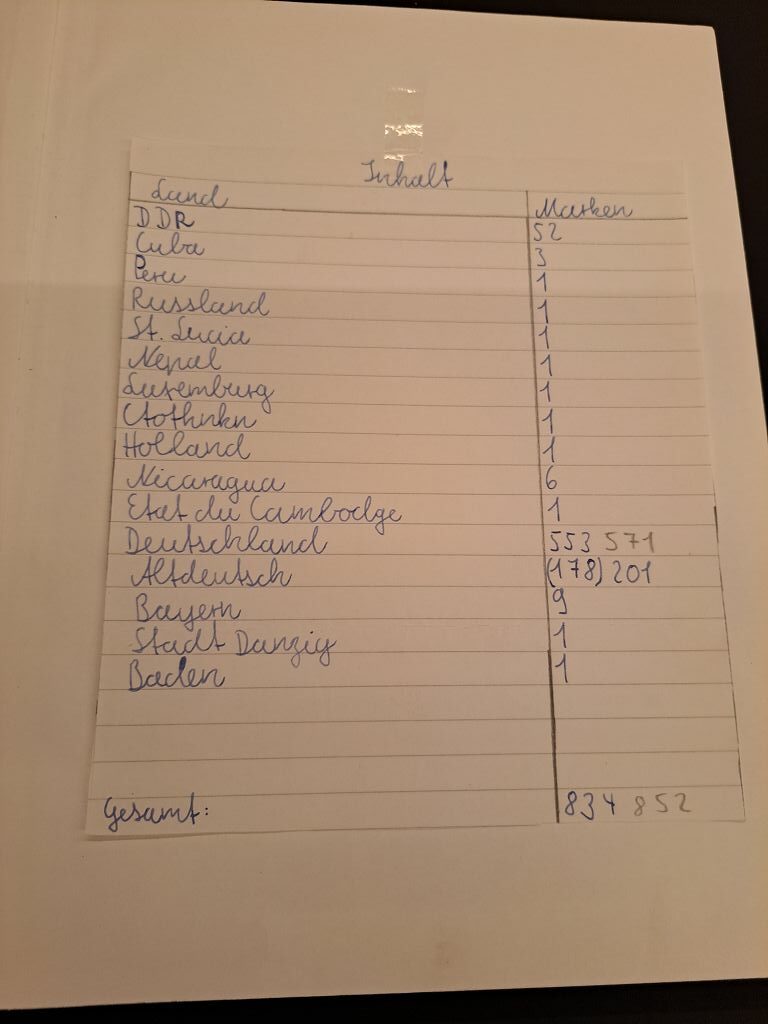 Inhalt
Land Marken
DDR 52
Cuba 3
Peru 1
Russland 1
St. Lucia 1
Nepal 1
Luxemburg 1
1
Holland 1
Nicaragua 6
Etat du Cambodge 1
Deutschland 553 571
Altdeutsch (178) 201
Bayern 9
Stadt Danzig 1
Baden 1
Gesamt: 834 852